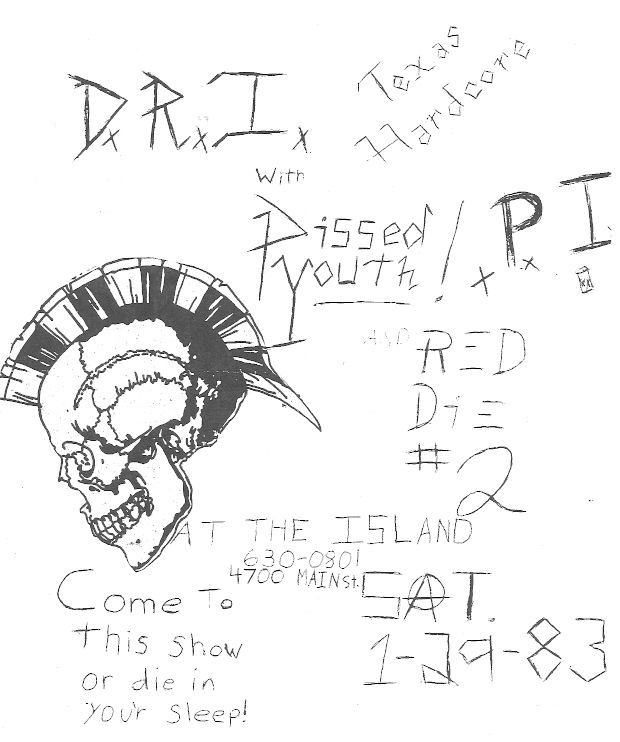 D.R.I.
Texas
Hardcore
With
Pissed
Youth!
P.I
AND RED
DiE
#2
AT THE ISLAND
630-0801
4700 MAIN St.
SAT.
1-29-83
Come To
this show
or die in
your sleep!